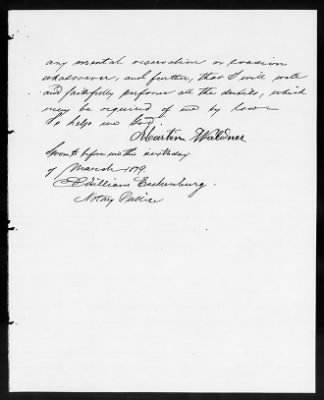 any mental reservation or evasion
whatsoever, and further, that I will well
and faithfully perform all the duties, which
may be required of me by law
So help me God.
Martin Waldner
Sworn to before me this ninth day
of March 1879.
William Eschenburg.
Notary Public